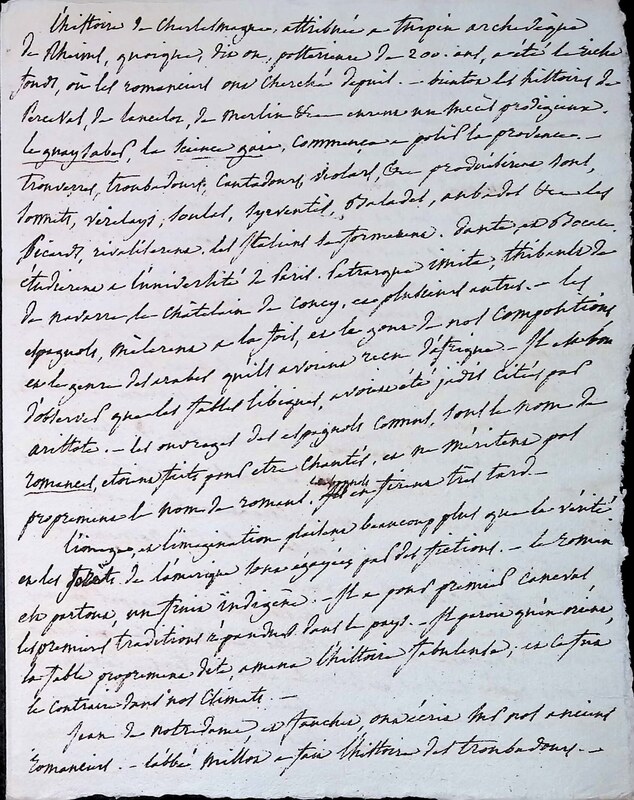 L'histoire de Charlemagne, attribuée a turpin archevêque
de Rheims, quoique, dit on, posterieure de 200. ans, a été le riche
fonds, où les romanciers ont cherché depuis. — bientot les histoires de
Perceval, de lancelot, de merlin &c — eurent un succès prodigieux.
le guay sabes, la science gaie, commença a polir la provence. —
trouverres, troubadours, cantadours, violars, &c produisirent sons,
sonnets, virelays, soulas, syrventes, Balades, aubades &c — les
Picards, rivaliserent. les italiens se formerent. dante et Bocace
étudierent a l'université de Paris. Petrarque imita, thibault de
de navarre le châtelain de coucy, et plusieurs autres. — les
espagnols, mêlerent a la fois, et le gout de nos compositions
et le genre des arabes qu'ils avoient recu d'afrique. — Il est bon
d'observer que les fables libiques, avoient été jadis citées par
aristote. — les ouvrages des espagnols connus, sous le nom de
romances, etoient faits pour etre chantés, et ne méritent pas
proprement le nom de romans. les espagnols en firent tres tard. —
l'image et l'imagination plaisent beaucoup plus que la vérité
et les forêts de l'amerique sont égayées par des fictions. — le roman
est partout, un fruit indigène. — Il a pour premier canevas,
les premieres traditions répandues dans le pays. — Il paroit qu'en orient,
la fable proprement dite, amena l'histoire fabuleuse; et ce fut
le contraire dans nos climats. —
Jean de notredame, et fauchet, ont écrit sur nos anciens
romanciers. — l'abbé millot a fait l'histoire des troubadours. —